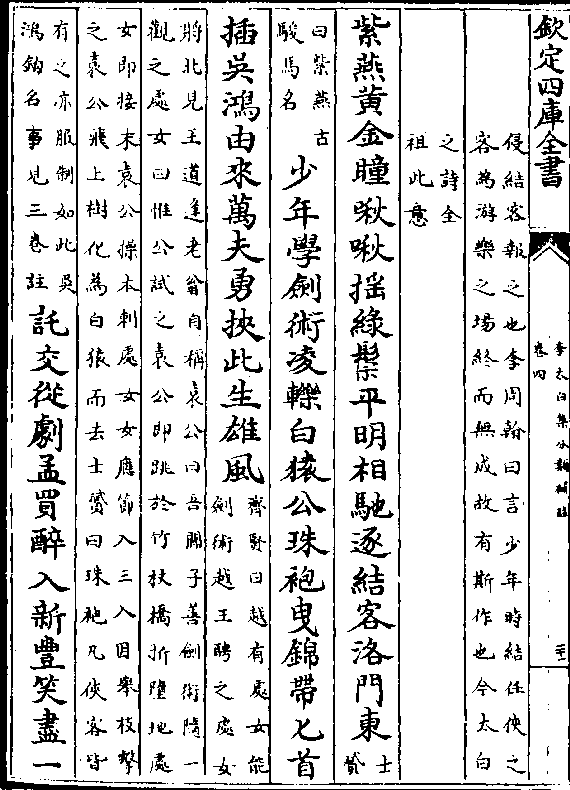 欽定四庫全書
李太白集分類補註
卷四
侵結客報之也李周翰曰言少年時結任俠之
客為游樂之場終而無成故有斯作也今太白
之詩全
祖此意
紫燕黃金瞳啾啾搖綠騣平明相馳逐結客洛門東士贇
曰紫燕古
駿馬名
少年學劍術凌轢白猿公珠袍曳錦帶匕首
插吳鴻由來萬夫勇挾此生雄風
齊賢曰越有處女能
劍術越王聘之處女
將北見王道逢老翁自稱袁公曰吾聞子善劍術隨一
觀之處女曰惟公試之袁公即跳於竹杖橋折墮地處
女即接末袁公操本刺處女女應節入三入因舉枝擊
之袁公飛上樹化為白猿而去士贇曰珠袍凡俠客皆
有之亦服制如此吳
鴻鈎名事見三卷註
託交從劇孟買醉入新豐笑盡一